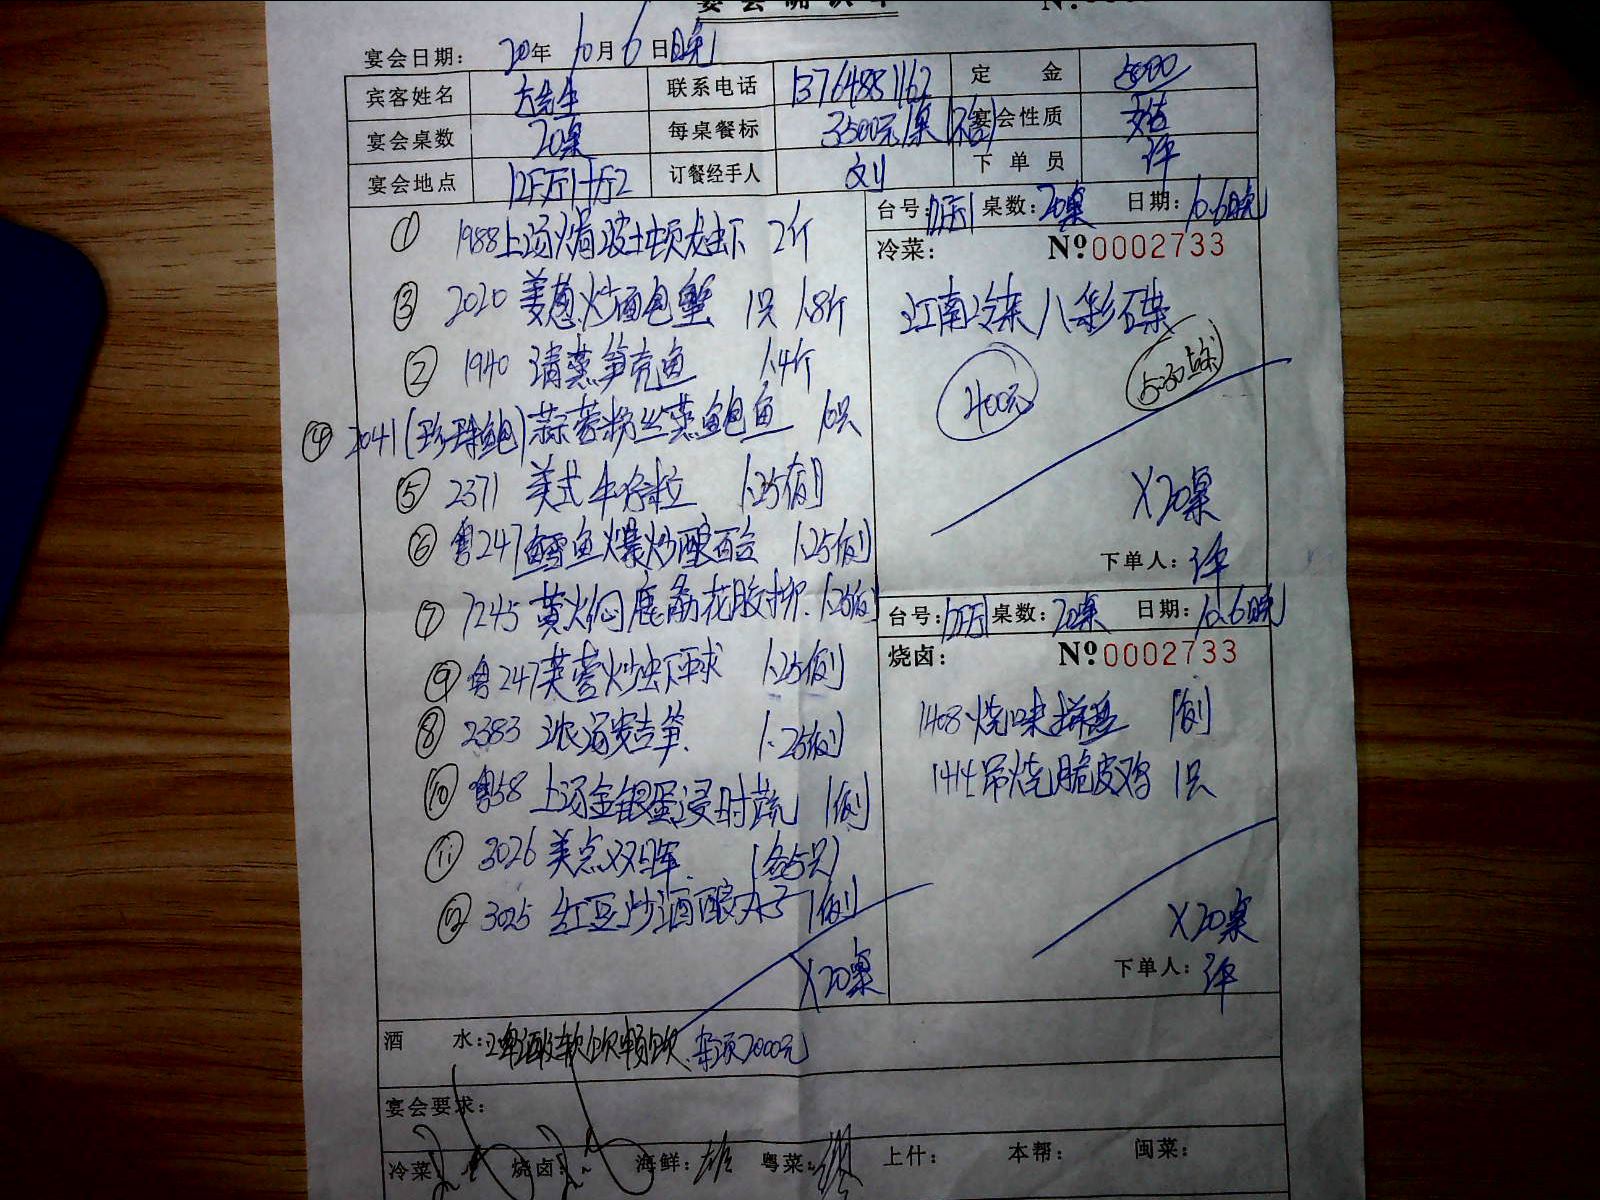 宴会确认单
宴会日期: 20年 10月 6日晚
宾客姓名 方先生 联系电话 13764881162 定 金 5000
宴会桌数 20桌 每桌餐标 3500元/桌 宴会性质
宴会地点 订餐经手人 刘 下 单 员 评
① 1988上汤焗波士顿龙虾 2斤
③ 2020 姜葱炒面包蟹 1只 1.8斤
② 1940 清蒸笋壳鱼 1.4斤
④ 2041(珍珠鲍)蒜蓉粉丝蒸鲍鱼 10只
⑤ 2371 美式牛仔粒 1.25例
⑥ 粤247 鳕鱼爆炒酿百合 1.25例
⑦ 7245 黄火焖鹿筋花胶 1.25例
⑨ 粤247芙蓉炒虾球 1.25例
⑧ 2383 浓汤芦吉笋 1.25例
⑩ 粤58 上汤金银蛋浸时蔬 1例
⑪ 3026 美点双晖 (各5只)
⑫ 3025 红豆炒酒酿丸子 1例
X20桌
台号: 桌数: 20桌 日期: 10.6晚
冷菜: Nº0002733
江南冷菜八彩碟
400元
5:30
X20桌
下单人: 评
台号: 桌数: 20桌 日期: 10.6晚
烧卤: Nº0002733
1408烧味拼盘 1例
1414吊烧脆皮鸡 1只
X20桌
下单人: 评
酒 水: 啤酒及软饮畅饮. 杂项2000元
宴会要求:
冷菜: 烧卤: 海鲜: 粤菜: 上什: 本帮: 闽菜: